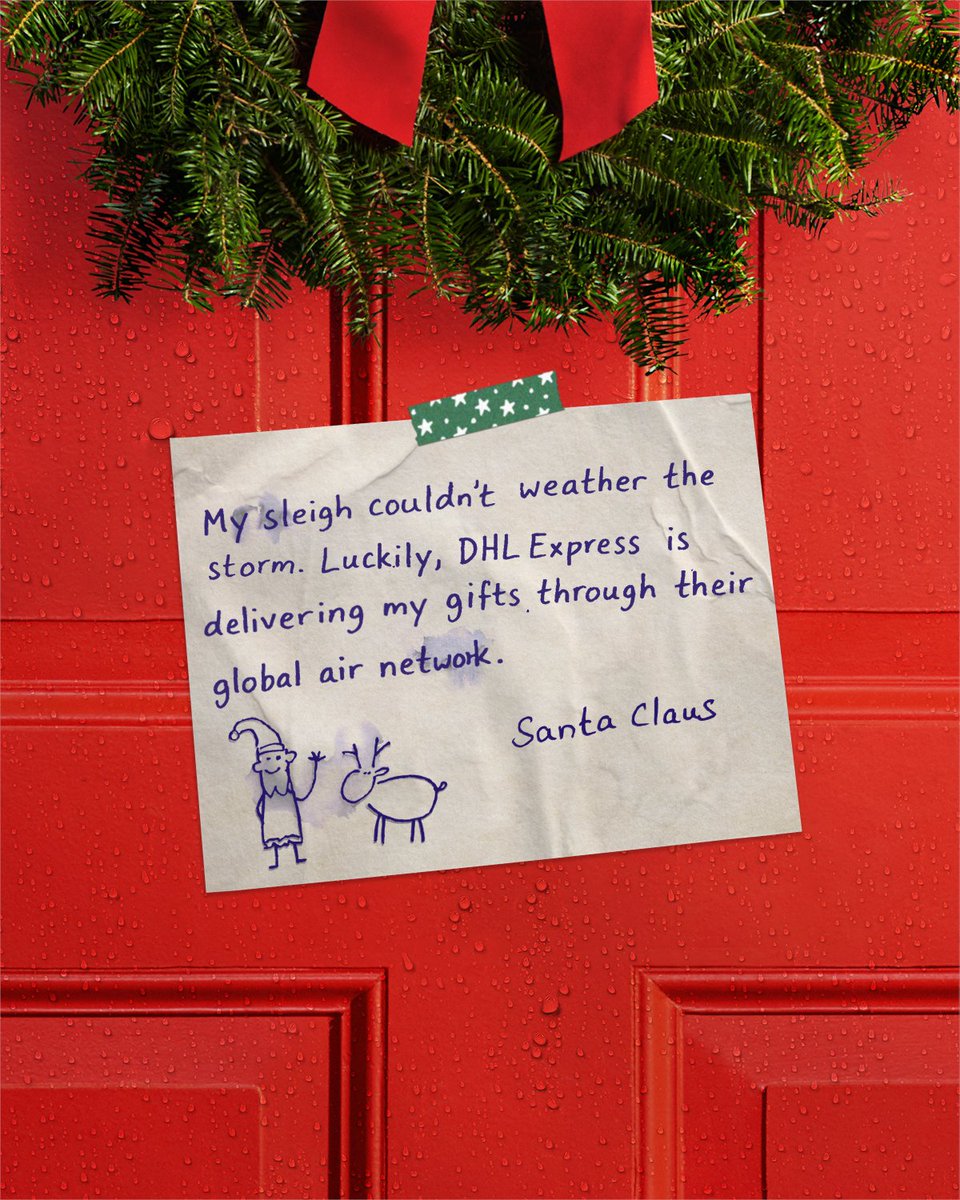 My sleigh couldn't weather the
storm. Luckily, DHL Express is
delivering my gifts through their
global air network.
Santa Claus